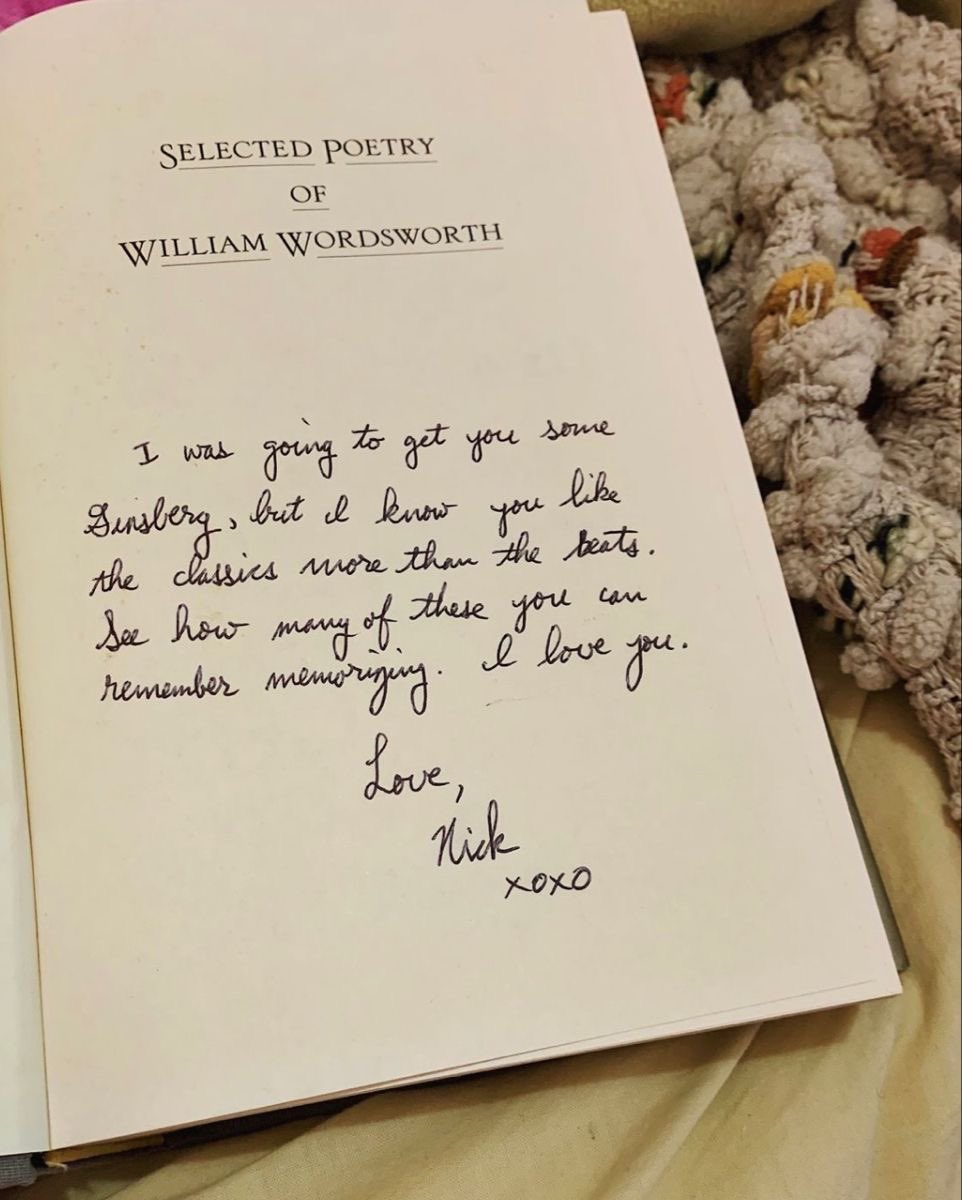 SELECTED POETRY
OF
WILLIAM WORDSWORTH
I was going to get you some
Ginsberg, but I know you like
the classics more than the beats.
See how many of these you can
remember memorizing. I love you.
Love,
Nick
xoxo